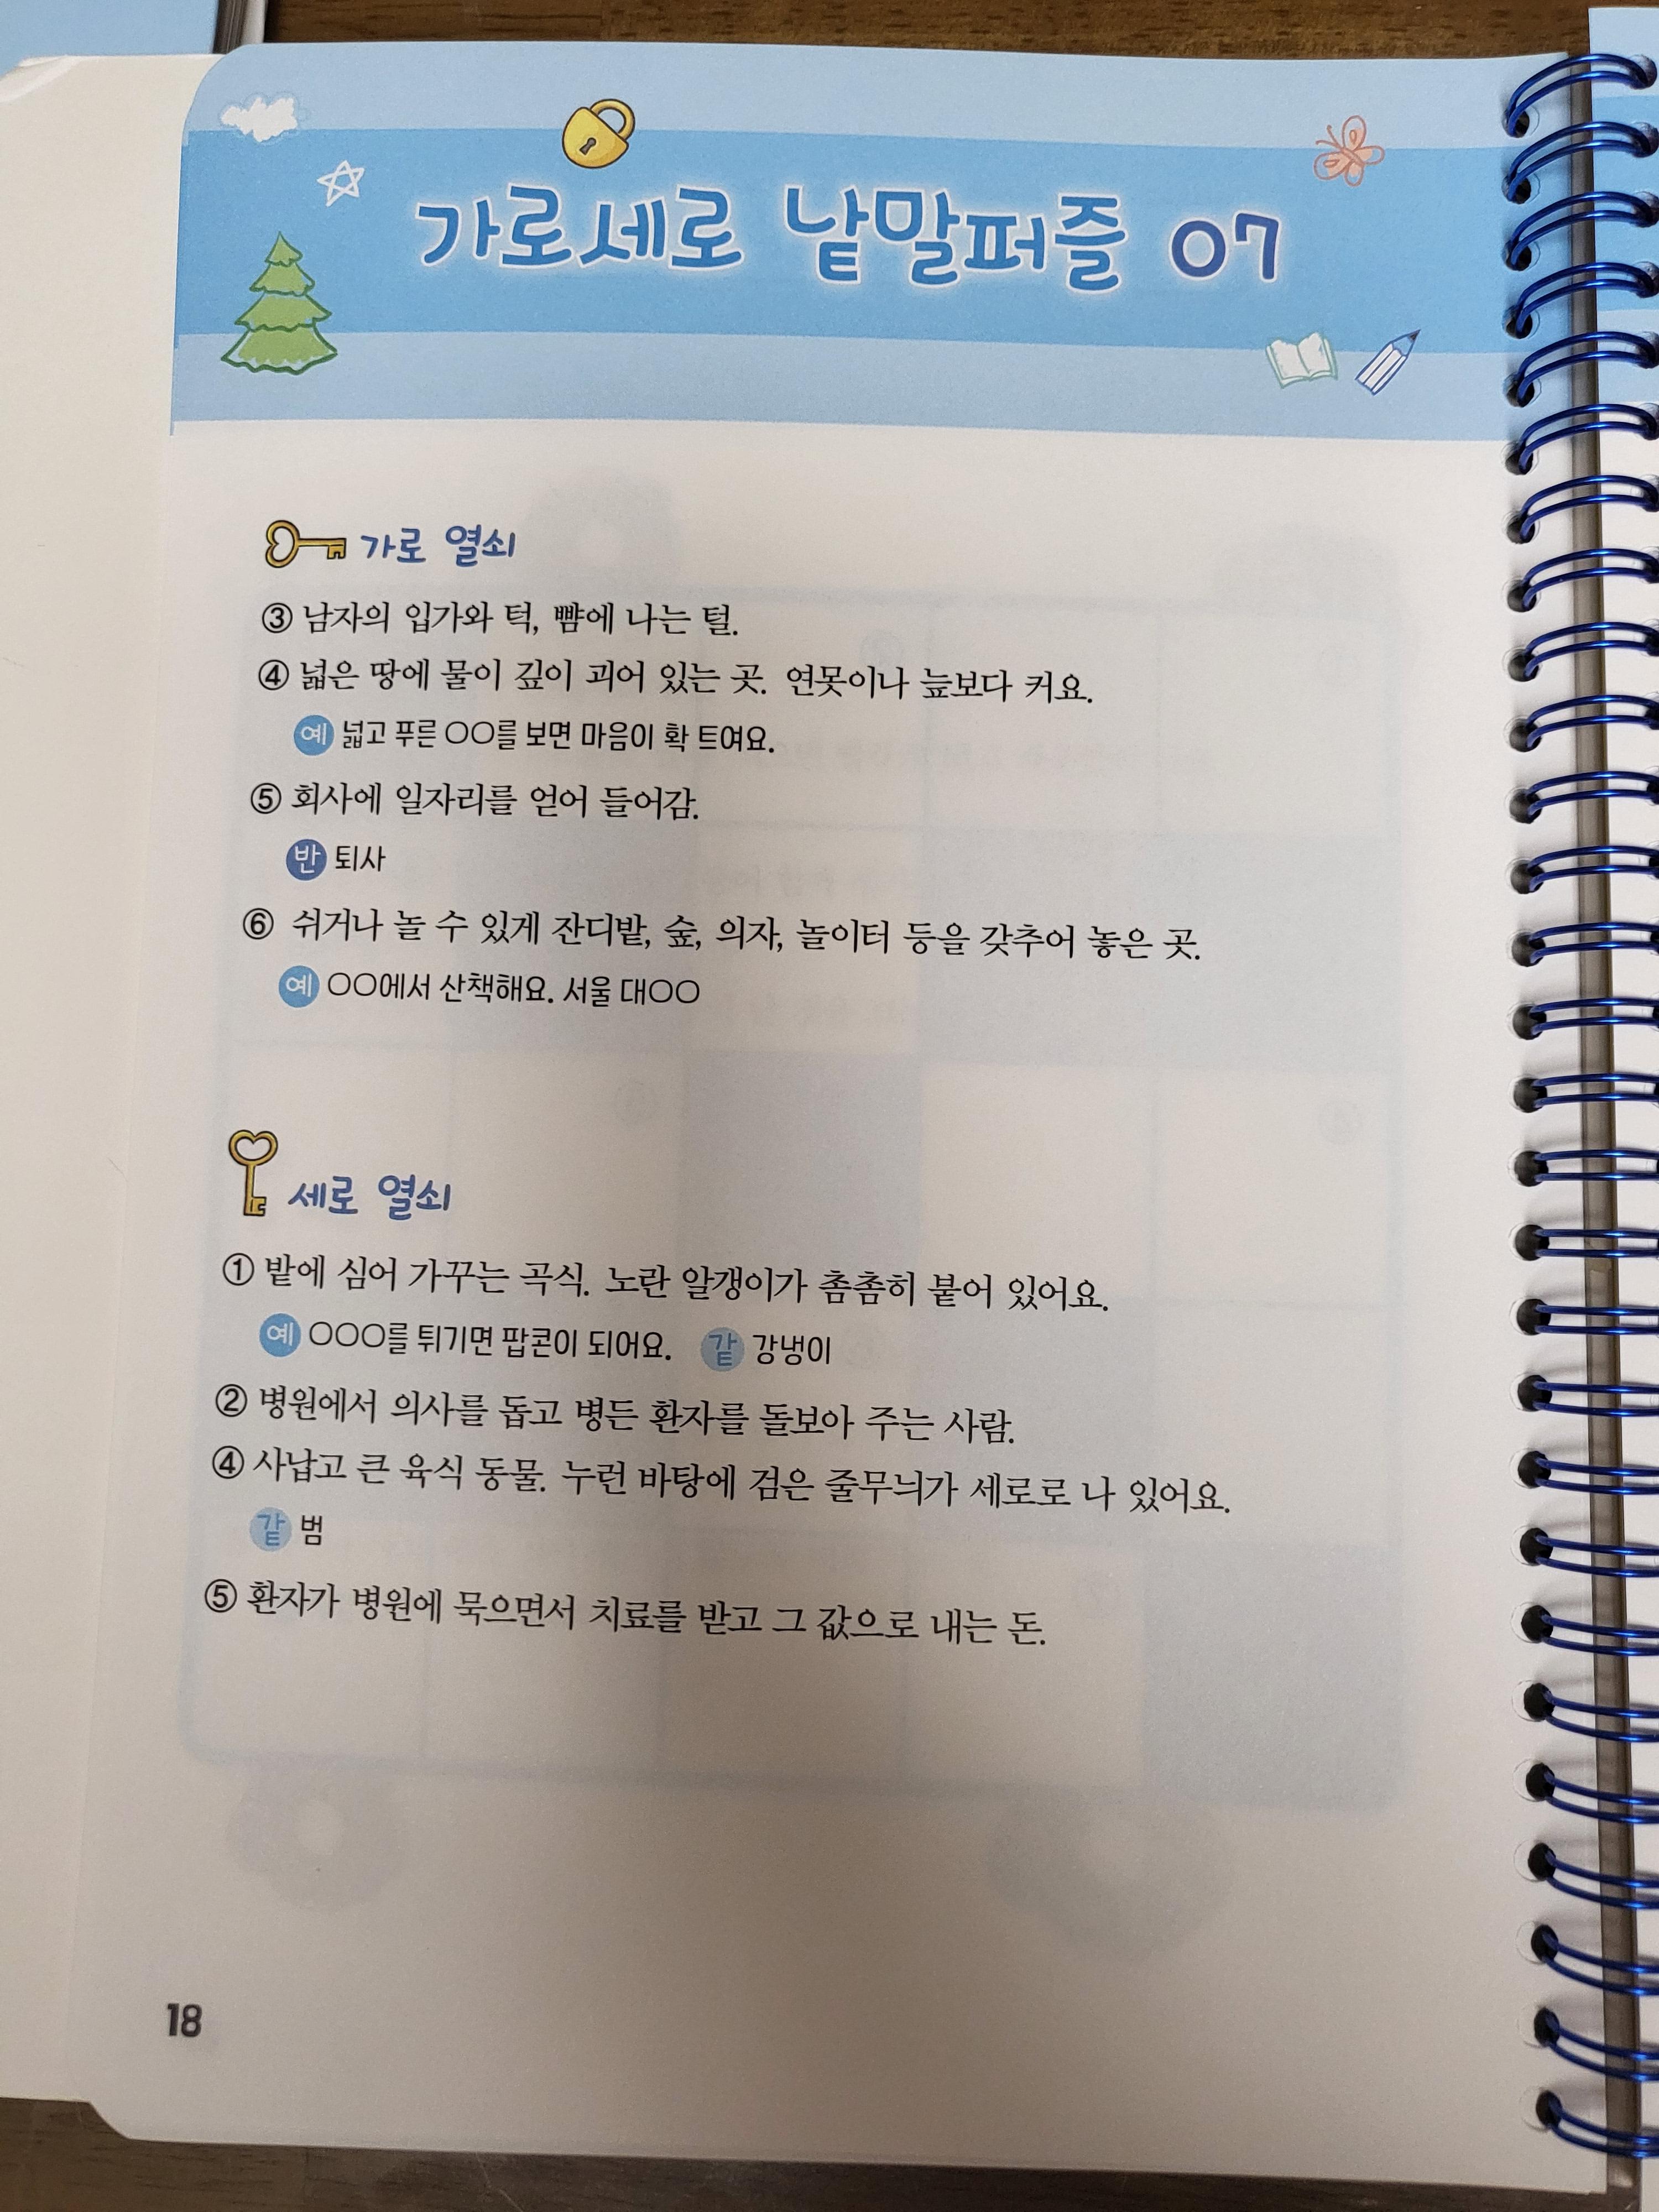 가로세로 낱말퍼즐 07
가로 열쇠
③ 남자의 입가와 턱, 뺨에 나는 털.
④ 넓은 땅에 물이 깊이 괴어 있는 곳. 연못이나 늪보다 커요.
예 넓고 푸른 ○○를 보면 마음이 확 트여요.
⑤ 회사에 일자리를 얻어 들어감.
반 퇴사
⑥ 쉬거나 놀 수 있게 잔디밭, 숲, 의자, 놀이터 등을 갖추어 놓은 곳.
예 ○○에서 산책해요. 서울 대○○
세로 열쇠
① 밭에 심어 가꾸는 곡식. 노란 알갱이가 촘촘히 붙어 있어요.
예 ○○○를 튀기면 팝콘이 되어요. 같 강냉이
② 병원에서 의사를 돕고 병든 환자를 돌보아 주는 사람.
④ 사납고 큰 육식 동물. 누런 바탕에 검은 줄무늬가 세로로 나 있어요.
같 범
⑤ 환자가 병원에 묵으면서 치료를 받고 그 값으로 내는 돈.
18